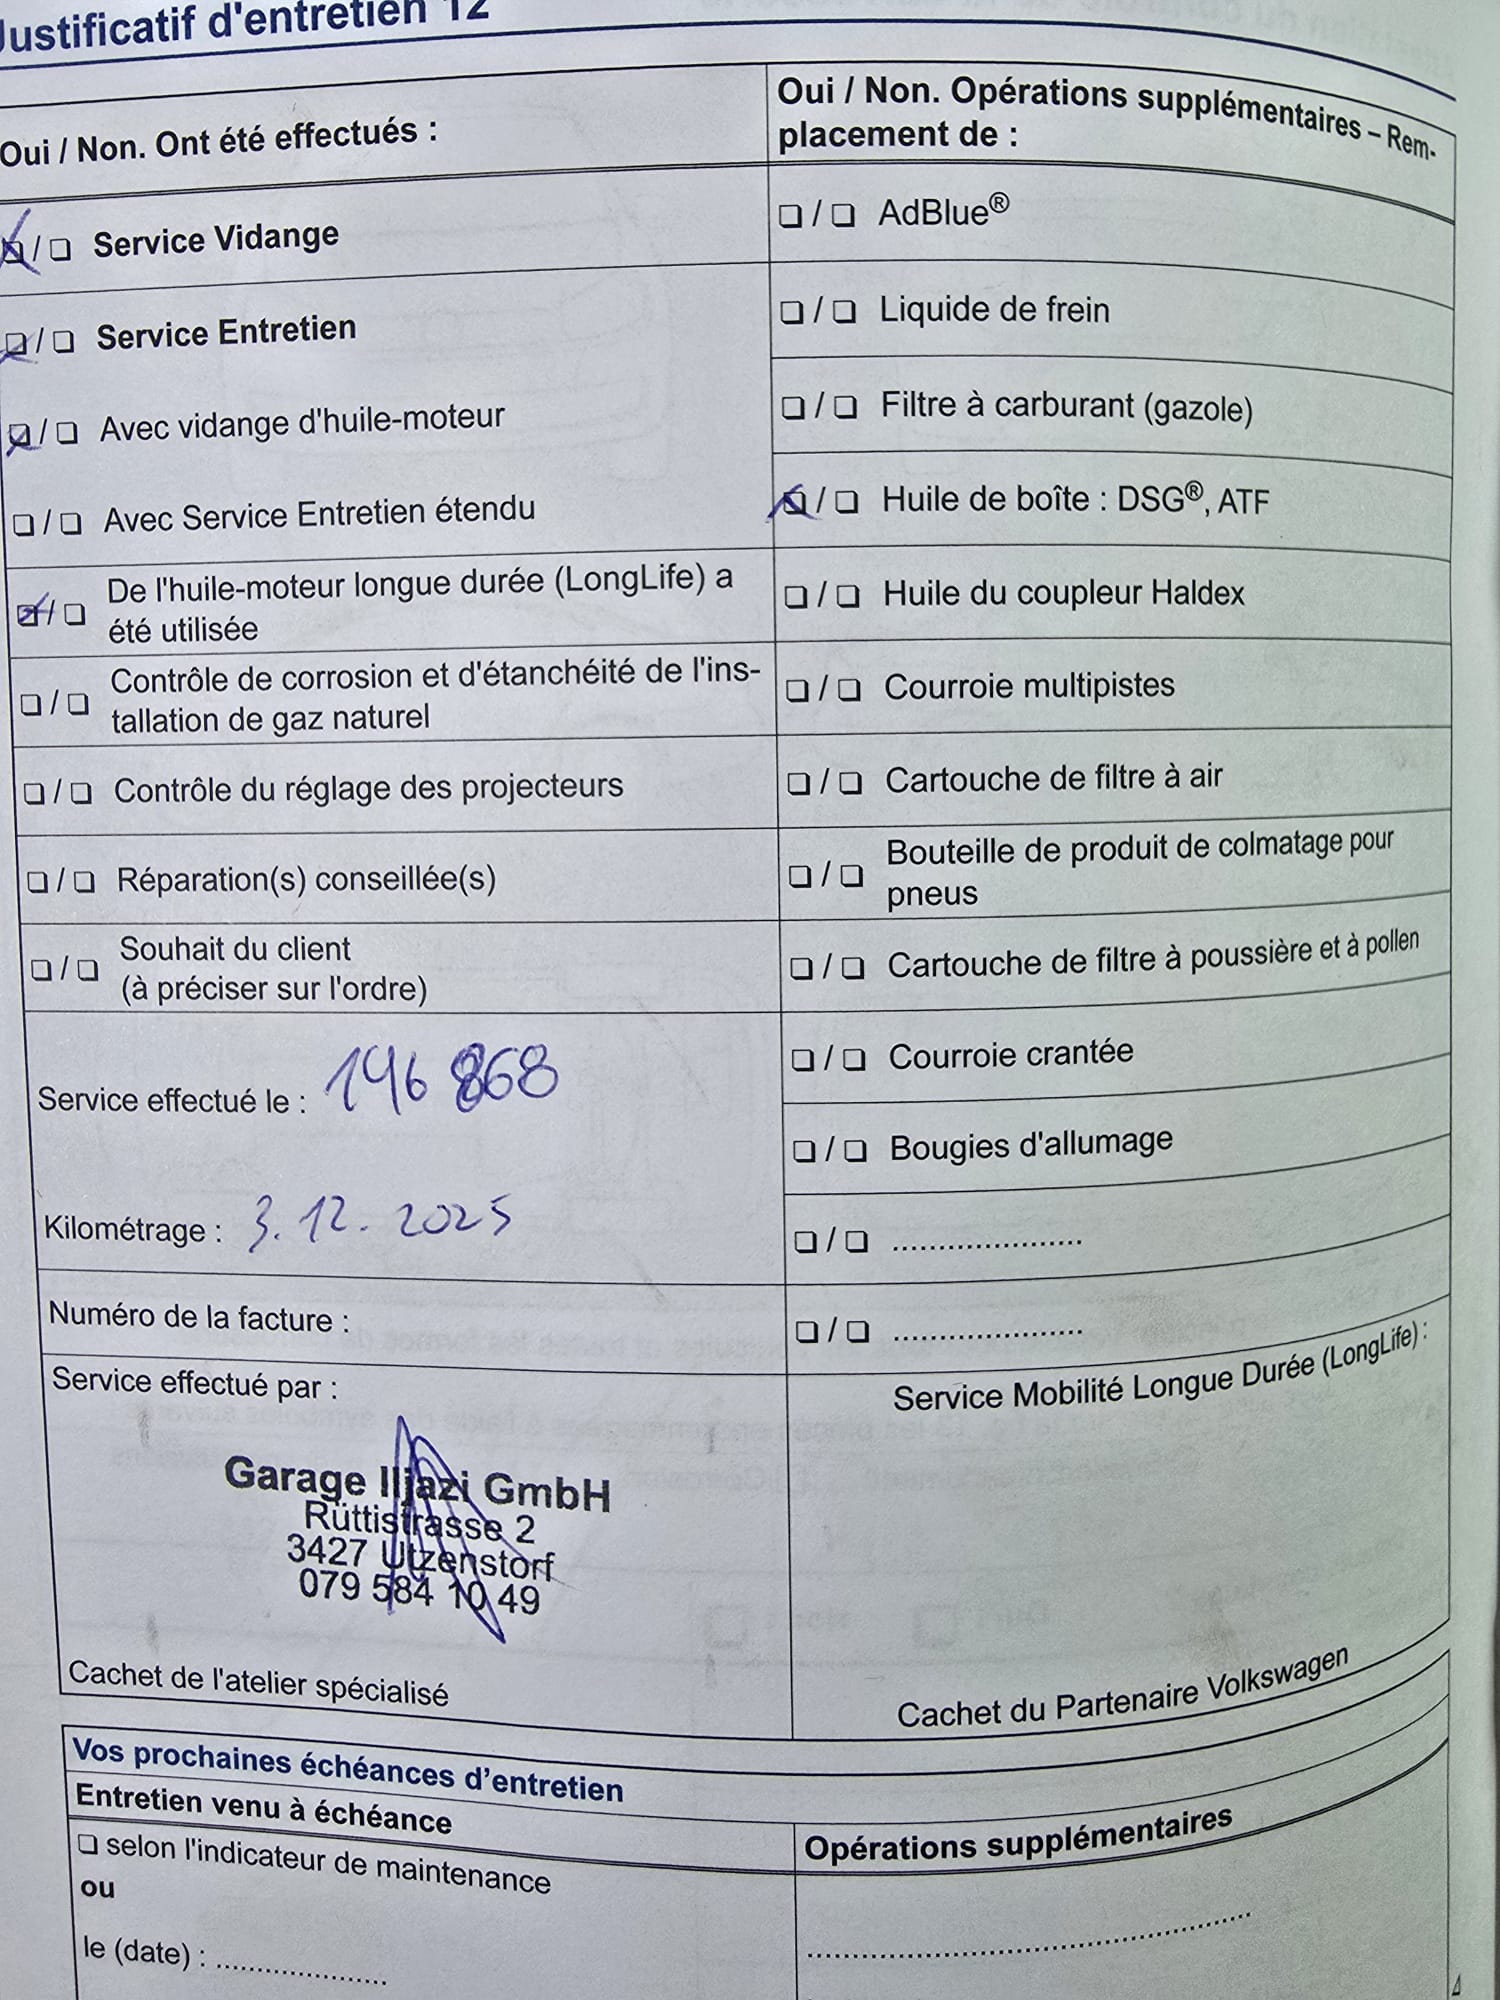 Justificatif d'entretien 12
Oui / Non. Ont été effectués :
☒ / ❏ Service Vidange
☒ / ❏ Service Entretien
☒ / ❏ Avec vidange d'huile-moteur
❏ / ❏ Avec Service Entretien étendu
☒ / ❏ De l'huile-moteur longue durée (LongLife) a
été utilisée
❏ / ❏ Contrôle de corrosion et d'étanchéité de l'ins-
tallation de gaz naturel
❏ / ❏ Contrôle du réglage des projecteurs
❏ / ❏ Réparation(s) conseillée(s)
❏ / ❏ Souhait du client
(à préciser sur l'ordre)
Service effectué le : 146 868
Kilométrage : 3.12.2025
Numéro de la facture :
Service effectué par :
Garage Iljazi GmbH
Rüttistrasse 2
3427 Utzenstorf
079 584 10 49
Cachet de l'atelier spécialisé
Oui / Non. Opérations supplémentaires – Rem-
placement de :
❏ / ❏ AdBlue®
❏ / ❏ Liquide de frein
❏ / ❏ Filtre à carburant (gazole)
☒ / ❏ Huile de boîte : DSG®, ATF
❏ / ❏ Huile du coupleur Haldex
❏ / ❏ Courroie multipistes
❏ / ❏ Cartouche de filtre à air
❏ / ❏ Bouteille de produit de colmatage pour
pneus
❏ / ❏ Cartouche de filtre à poussière et à pollen
❏ / ❏ Courroie crantée
❏ / ❏ Bougies d'allumage
❏ / ❏ .....................
❏ / ❏ .....................
Service Mobilité Longue Durée (LongLife) :
Cachet du Partenaire Volkswagen
Vos prochaines échéances d'entretien
Entretien venu à échéance
❏ selon l'indicateur de maintenance
ou
le (date) : ...................
Opérations supplémentaires